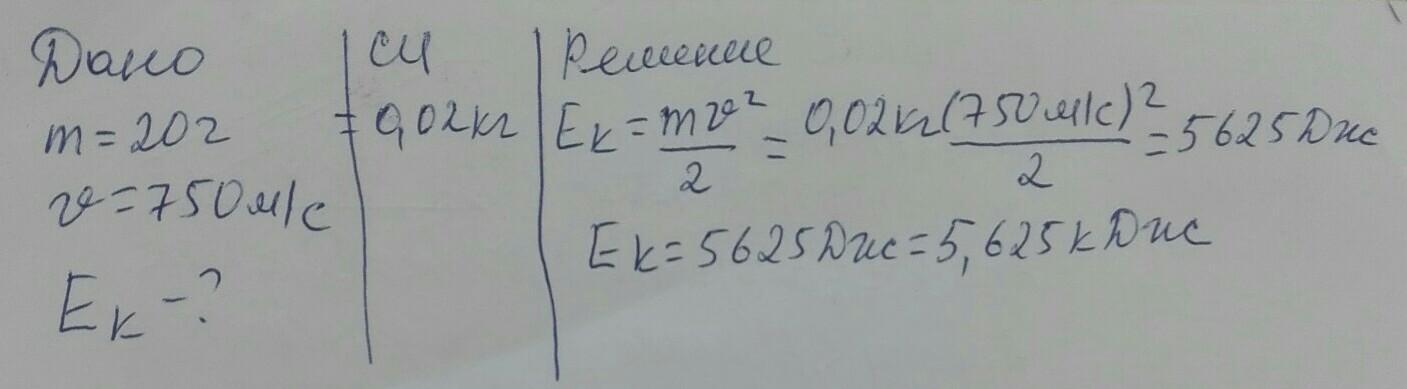 Дано
m=20г
v=750м/с
Eк-?
СИ
=0,02кг
Решение
Eк=mv²/2=0,02кг(750м/с)²/2=5625Дж
Eк=5625Дж=5,625кДж